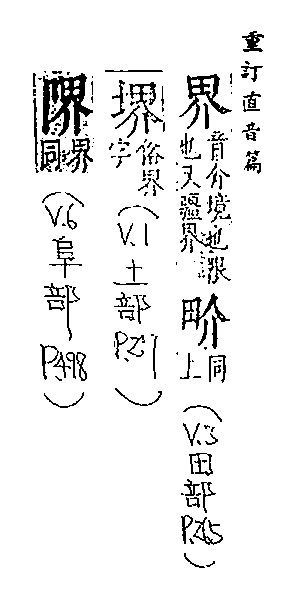 重訂直音篇
界 音介境也限也又疆界 畍 同上
(V.3 田部 P.265)
堺 俗界字
(V.1 土部 P.27)
㘏 界同
(V.6 阜部 P.498)